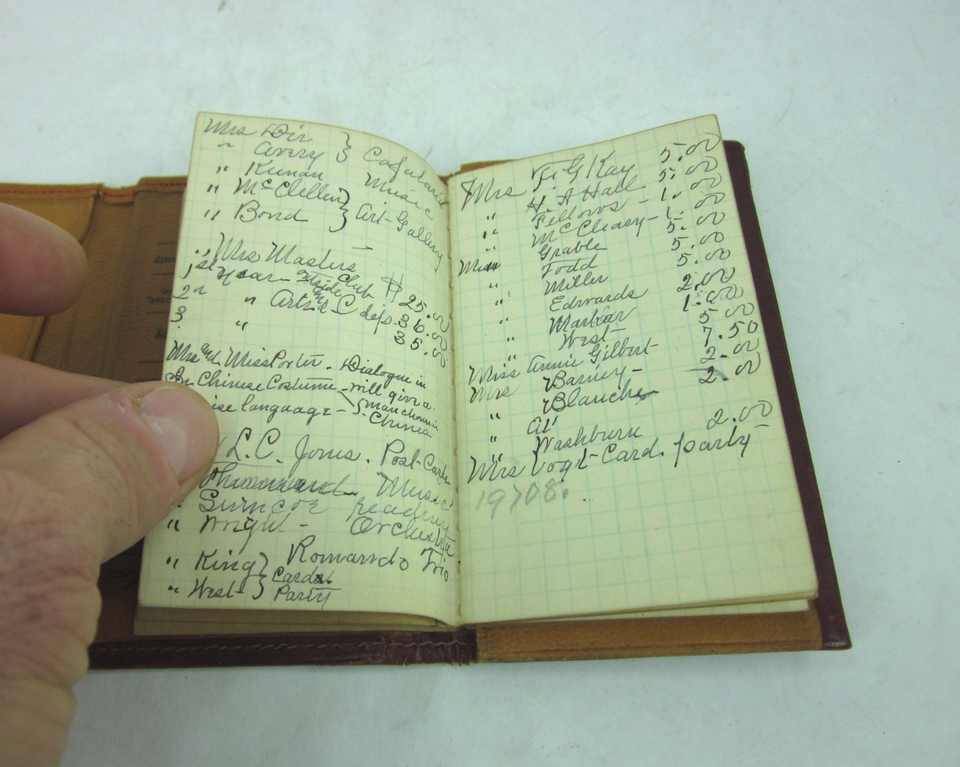 Mrs Dir }
" Avery }
" Keenan Music
" McClellen }
" Bond } Art-Gallery
" Mrs Masters
1st year - Club $25.00
2n " Art dep. 36.00
3. " 35.00
Mrs and Miss Porter - Dialogue in
Chinese Costume - will give a
ise language - S. China
L. C. Jones. Post-Cards
Music
" Simcoe reading
" Wright - Orchestra
" King } Romando Trio
" West } Cards
Party
Mrs F. G Kay 5.00
" H. A Hall 5.00
" Fellows - 1.00
" McCleary - 1.00
" Grable 5.00
Miss Todd 5.00
" Miller
" Edwards 2.00
" Markar 1.00
" West - 5.00
Miss Annie Gilbert 7.50
Mrs Barney - 2.00
" Blanche 2.00
" Al
" Washburn 2.00
Mrs Vogt-Card. party
19708.